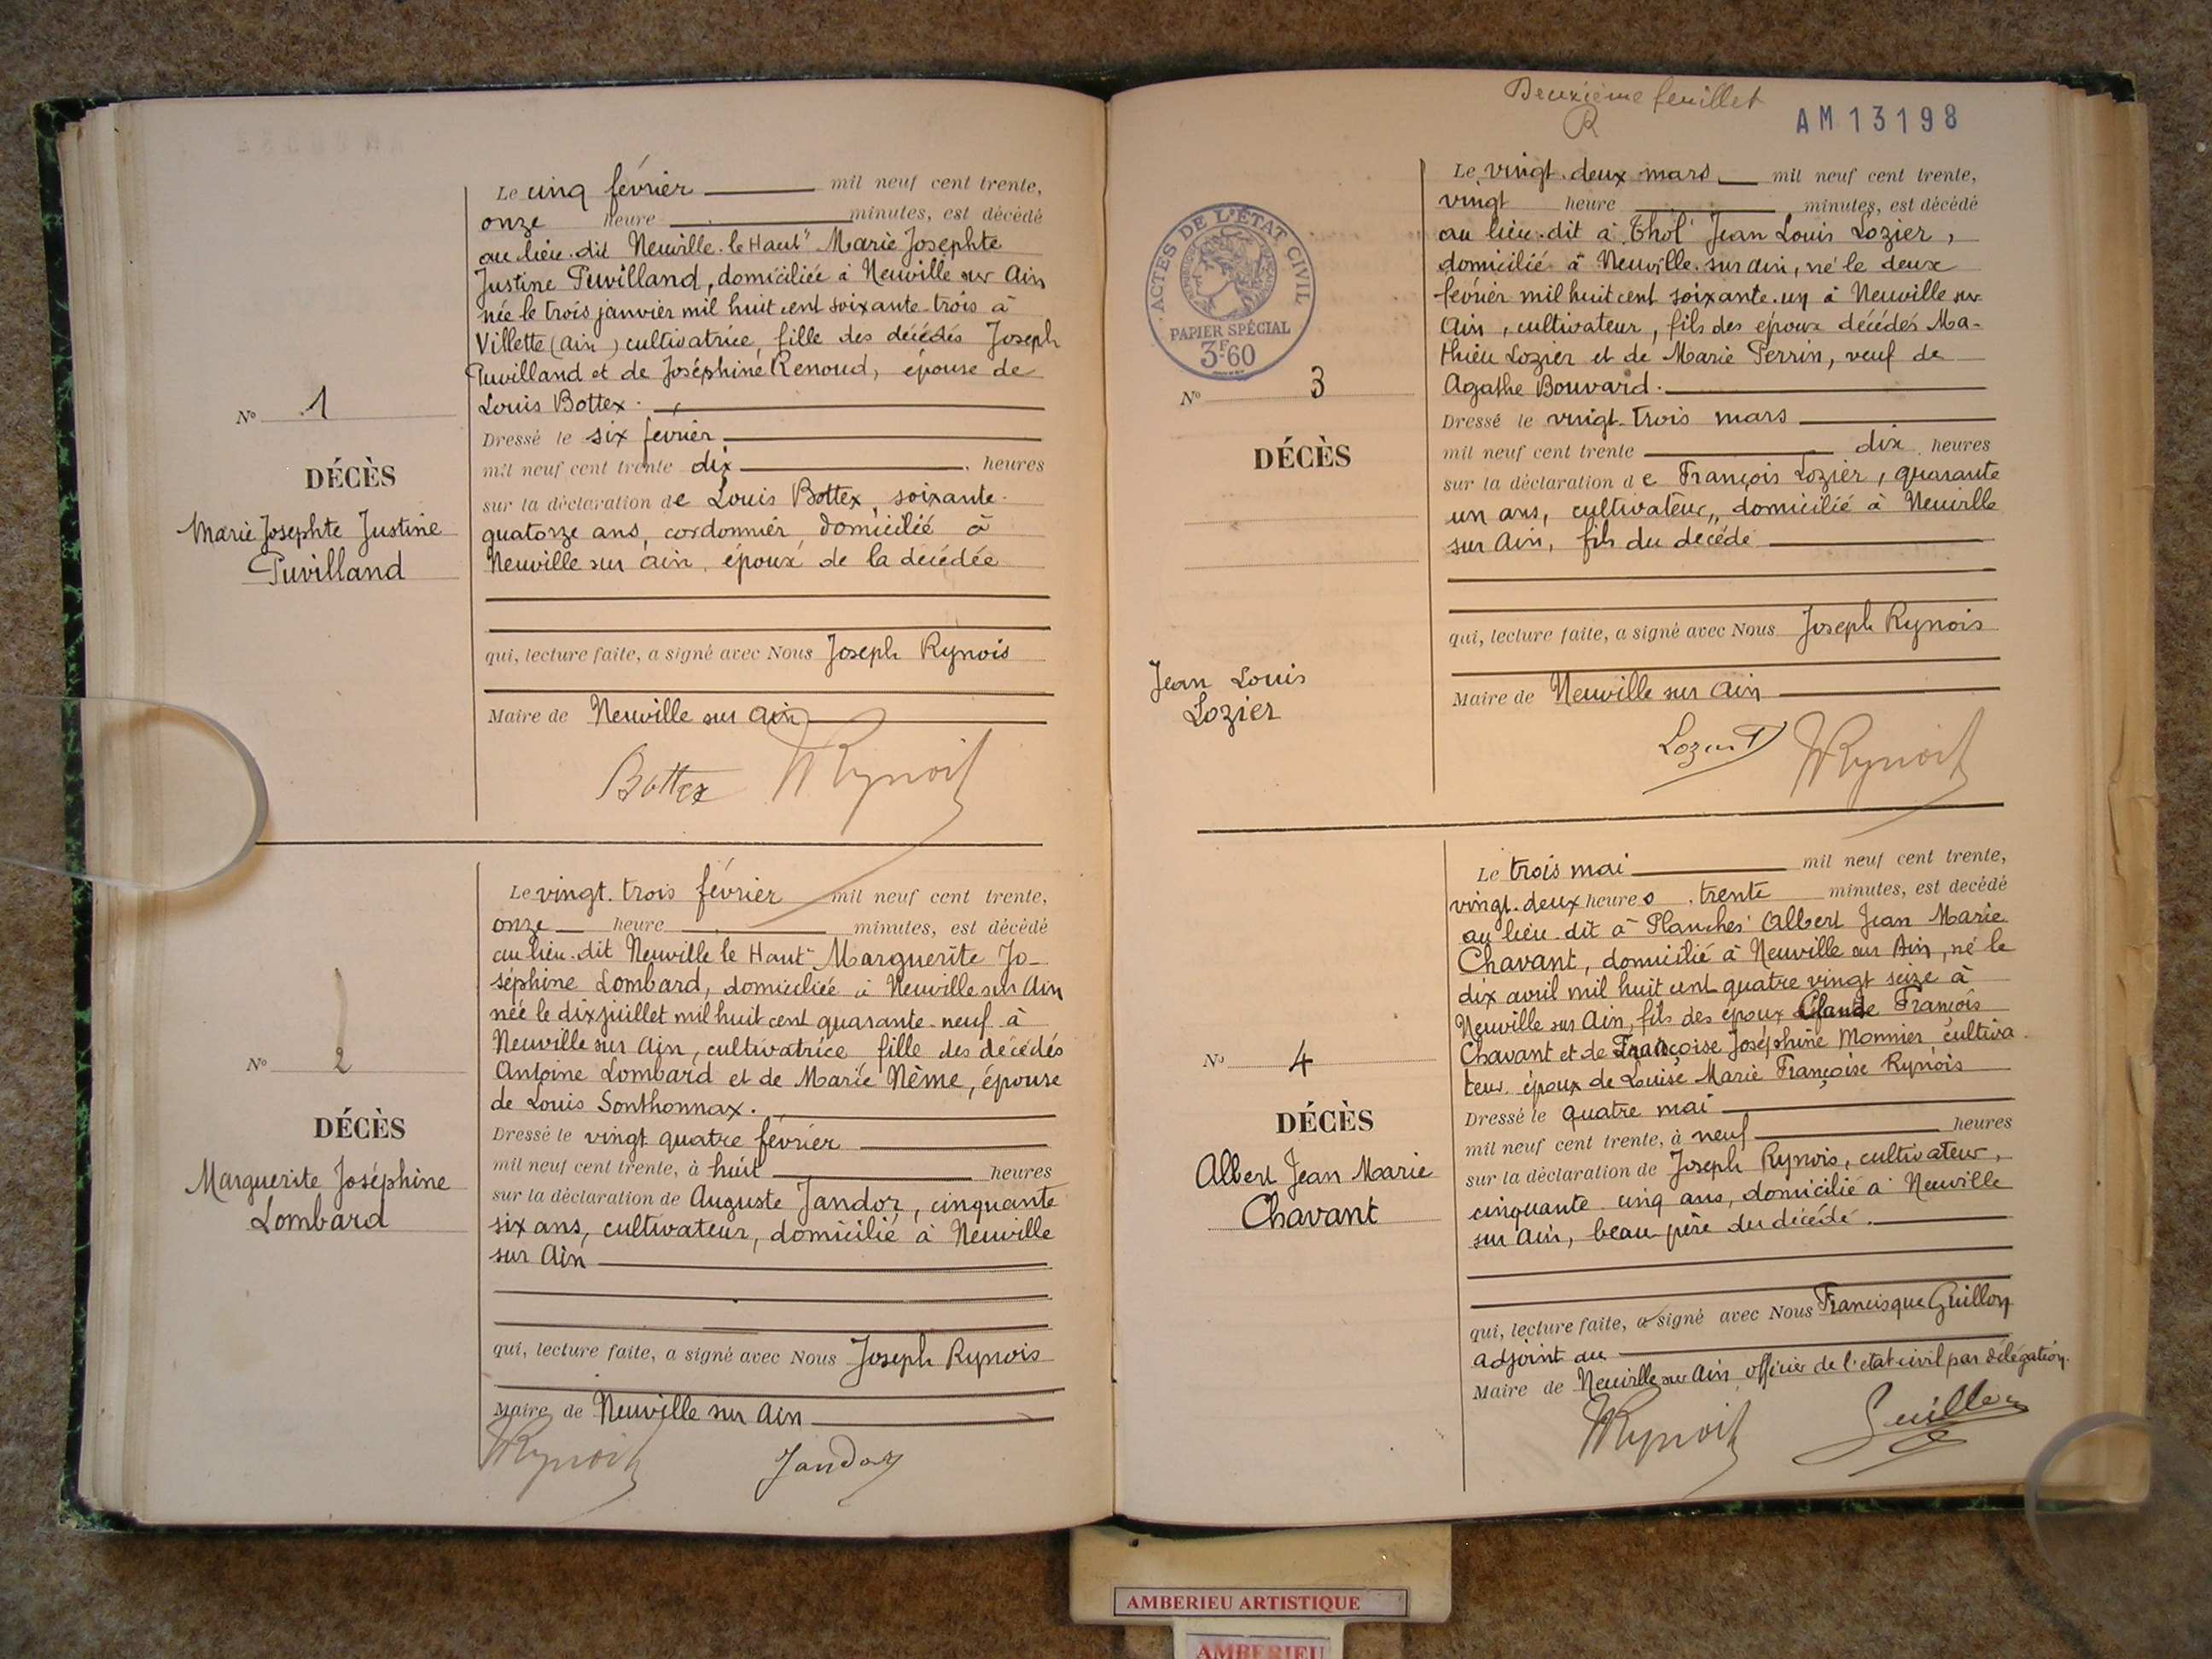 Le cinq février mil neuf cent trente,
onze heure minutes, est décédé
au lieu-dit Neuville-le Haut" Marie Josephte
Justine Puvilland, domiciliée à Neuville sur Ain
née le trois janvier mil huit cent soixante-trois à
Villette (Ain) cultivatrice, fille des décédés Joseph
Puvilland et de Joséphine Renoud, épouse de
Louis Bottex.
Dressé le six février
mil neuf cent trente dix heures
sur la déclaration de Louis Bottex, soixante-
quatorze ans, cordonnier, domicilié à
Neuville sur Ain, époux de la décédée
qui, lecture faite, a signé avec Nous Joseph Rynois
Maire de Neuville sur Ain
Bottex Rynois
N° 1
DÉCÈS
Marie Josephte Justine
Puvilland
Le vingt-trois février mil neuf cent trente,
onze heure minutes, est décédé
au lieu-dit Neuville le Haut" Marguerite Jo-
séphine Lombard, domiciliée à Neuville sur Ain
née le dix juillet mil huit cent quarante-neuf à
Neuville sur Ain, cultivatrice fille des décédés
Antoine Lombard et de Marie Nème, épouse
de Louis Sonthonnax.
Dressé le vingt-quatre février
mil neuf cent trente, à huit heures
sur la déclaration de Auguste Jandor, cinquante
six ans, cultivateur, domicilié à Neuville
sur Ain
qui, lecture faite, a signé avec Nous Joseph Rynois
Maire de Neuville sur Ain
Rynois Jandor
N° 2
DÉCÈS
Marguerite Joséphine
Lombard
Deuxième feuillet
R
AM13198
ACTES DE L'ÉTAT CIVIL
PAPIER SPÉCIAL
3F60
Le vingt-deux mars mil neuf cent trente,
vingt heure minutes, est décédé
au lieu-dit à Thol Jean Louis Lozier,
domicilié à Neuville-sur Ain, né le deux
février mil huit cent soixante-un à Neuville sur
Ain, cultivateur, fils des époux décédés Ma-
thieu Lozier et de Marie Perrin, veuf de
Agathe Bouvard.
Dressé le vingt-trois mars
mil neuf cent trente dix heures
sur la déclaration de François Lozier, quarante
un ans, cultivateur, domicilié à Neuville
sur Ain, fils du décédé
qui, lecture faite, a signé avec Nous Joseph Rynois
Maire de Neuville sur Ain
Rynois
N° 3
DÉCÈS
Jean Louis
Lozier
Le trois mai mil neuf cent trente,
vingt-deux heures trente minutes, est décédé
au lieu-dit à Planches Albert Jean Marie
Chavant, domicilié à Neuville sur Ain, né le
dix avril mil huit cent quatre vingt seize à
Neuville sur Ain, fils des époux Claude François
Chavant et de Françoise Joséphine Monnier, cultiva-
teur époux de Louise Marie Françoise Rynois
Dressé le quatre mai
mil neuf cent trente, à neuf heures
sur la déclaration de Joseph Rynois, cultivateur,
cinquante cinq ans, domicilié à Neuville
sur Ain, beau-père du décédé.
qui, lecture faite, a signé avec Nous Francisque Guillon
adjoint au
Maire de Neuville sur Ain officier de l'état-civil par délégation.
Rynois Guillon
N° 4
DÉCÈS
Albert Jean Marie
Chavant
AMBERIEU ARTISTIQUE
AMBERIEU